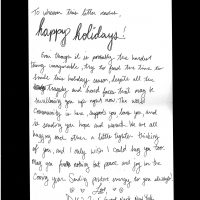 To whoever this letter reaches,
happy holidays!
Even though it is probably the hardest
thing imaginable, try to find the time to
smile this holiday season, despite all the
tragedy and hard faces that may be
swallowing you up right now. The world
community is here, supports you, loves you, and
is sending you hope and warmth. We are all
hugging each other a little tighter thinking
of you, and I only wish I could hug you too.
May you find nothing but peace and joy in the
coming year. Sending positive energy for you always!
Love,
New York